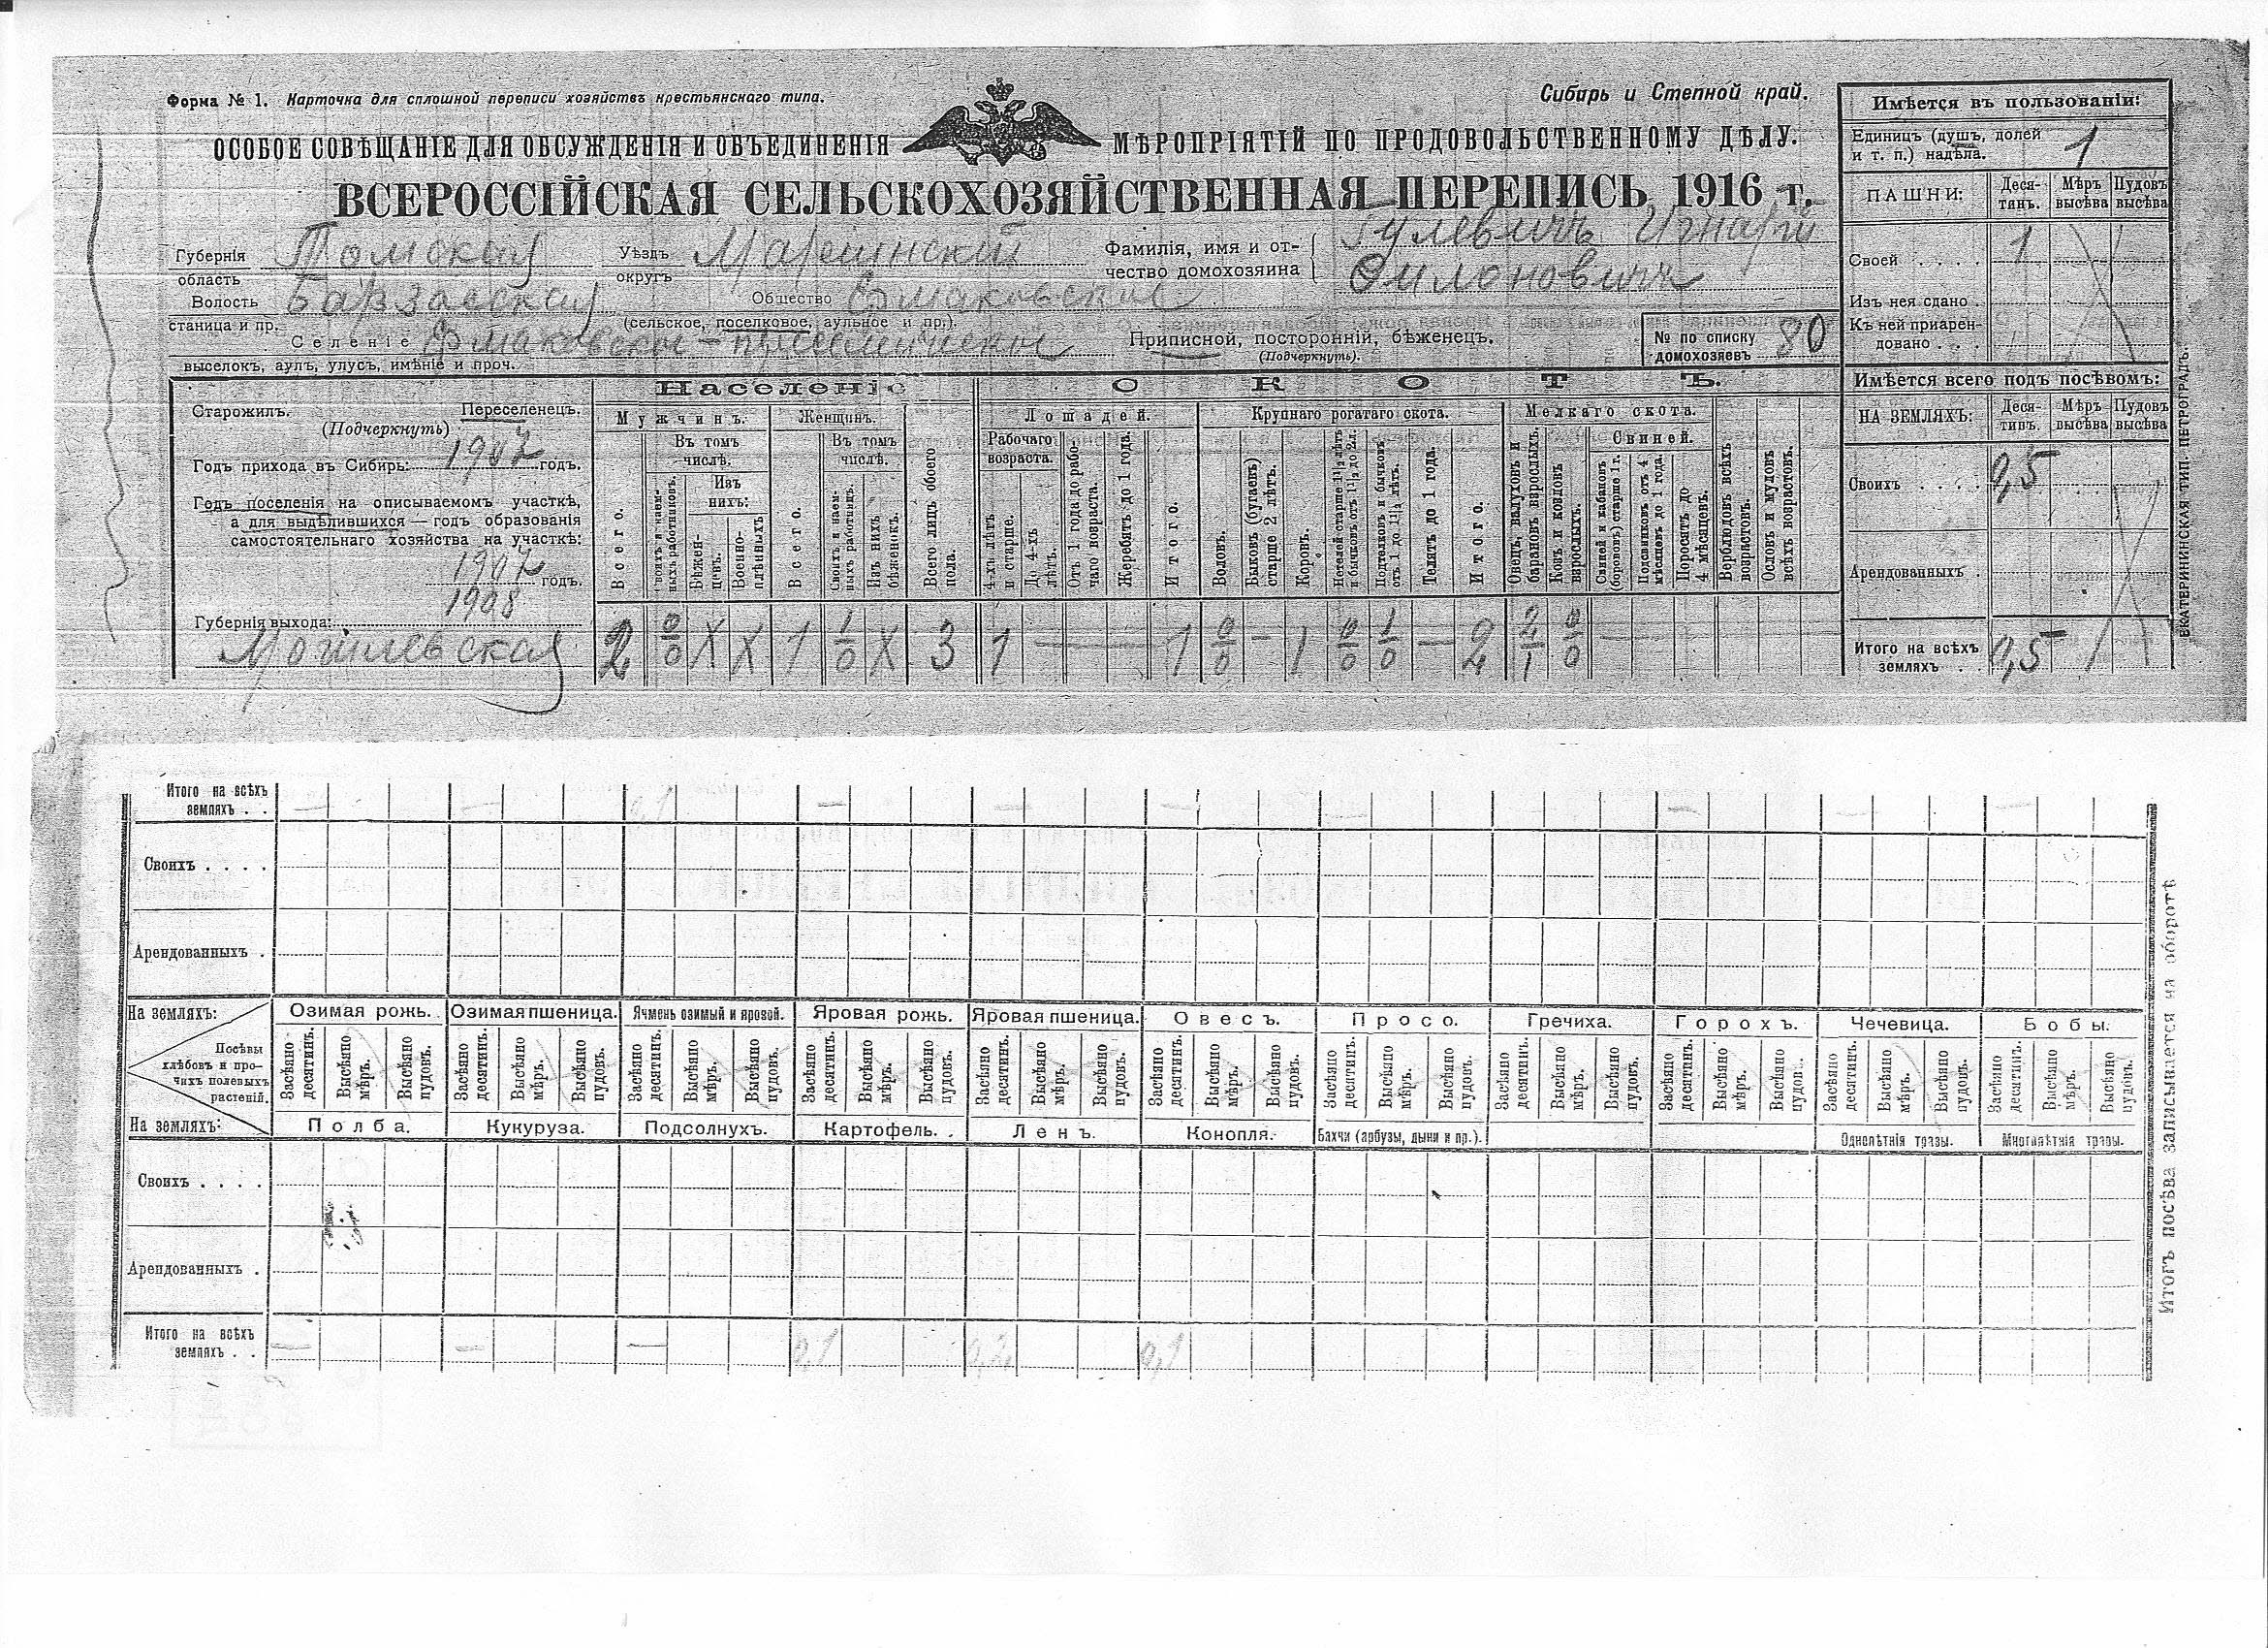 Форма № 1. Карточка для сплошной переписи хозяйствъ крестьянскаго типа.
Сибирь и Степной край.
ОСОБОЕ СОВѢЩАНІЕ ДЛЯ ОБСУЖДЕНІЯ И ОБЪЕДИНЕНІЯ МѢРОПРІЯТІЙ ПО ПРОДОВОЛЬСТВЕННОМУ ДѢЛУ.
ВСЕРОССІЙСКАЯ СЕЛЬСКОХОЗЯЙСТВЕННАЯ ПЕРЕПИСЬ 1916 г.
Губернія область Томская
Уѣздъ округъ Маріинскій
Фамилія, имя и отчество домохозяина Гулевичъ Игнатій
Филоновичъ
Волость Барзасская
станица и пр.
Общество Ермаковское
(сельское, поселковое, аульное и пр.).
Селеніе Ермаковскій
выселокъ, аулъ, улусъ, имѣніе и проч.
Приписной, посторонній, бѣженецъ.
(Подчеркнуть).
№ по списку домохозяевъ 80
Старожилъ. Переселенецъ.
(Подчеркнуть)
Годъ прихода въ Сибирь: 1907 годъ.
Годъ поселенія на описываемомъ участкѣ,
а для выдѣлившихся — годъ образованія
самостоятельнаго хозяйства на участкѣ:
1907 годъ.
1908
Губернія выхода:
Могилевская
Населеніе
Мужчинъ. Женщинъ.
Всего.
Въ томъ числѣ.
Изъ нихъ:
Бѣженцевъ.
Военноплѣнныхъ
Всего.
Въ томъ числѣ.
Своихъ и наемныхъ работницъ.
Изъ нихъ бѣженокъ.
Всего лицъ обоего пола.
2 0/0 X X 1 1/0 X 3
СКОТЪ.
Лошадей.
Рабочаго возраста.
4-хъ лѣтъ и старше.
До 4-хъ лѣтъ.
Отъ 1 года до рабочаго возраста.
Жеребятъ до 1 года.
Итого.
Крупнаго рогатаго скота.
Воловъ.
Быковъ (бугаевъ) старше 2 лѣтъ.
Коровъ.
Нетелей старше 1½ лѣтъ и бычковъ отъ 1½ до 2 л.
Подтелковъ и бычковъ отъ 1 до 1½ лѣтъ.
Телятъ до 1 года.
Итого.
Мелкаго скота.
Овецъ, валуховъ и барановъ взрослыхъ.
Козъ и козловъ взрослыхъ.
Свиней.
Свиней и кабановъ (борововъ) старше 1 г.
Подсвинковъ отъ 4 мѣсяцевъ до 1 года.
Поросятъ до 4 мѣсяцевъ.
Верблюдовъ всѣхъ возрастовъ.
Ословъ и муловъ всѣхъ возрастовъ.
1 — 1 0/0 — 1 0/0 1/0 — 2 2/1 0/0 —
Имѣется въ пользованіи:
Единицъ (душъ, долей и т. п.) надѣла. 1
ПАШНИ: Десятинъ. Мѣръ высѣва Пудовъ высѣва
Своей 1
Изъ нея сдано
Къ ней приарендовано
Имѣется всего подъ посѣвомъ:
НА ЗЕМЛЯХЪ: Десятинъ. Мѣръ высѣва Пудовъ высѣва
Своихъ 0,5
Арендованныхъ
Итого на всѣхъ земляхъ 0,5
ЕКАТЕРИНИНСКАЯ ТИП. ПЕТРОГРАДЪ.
Итого на всѣхъ земляхъ
Своихъ
Арендованныхъ
На земляхъ: Озимая рожь. Озимая пшеница. Ячмень озимый и яровой. Яровая рожь. Яровая пшеница. Овесъ. Просо. Гречиха. Горохъ. Чечевица. Бобы.
Посѣвы хлѣбовъ и прочихъ полевыхъ растеній.
Засѣяно десятинъ. Высѣяно мѣръ. Высѣяно пудовъ. Засѣяно десятинъ. Высѣяно мѣръ. Высѣяно пудовъ. Засѣяно десятинъ. Высѣяно мѣръ. Высѣяно пудовъ. Засѣяно десятинъ. Высѣяно мѣръ. Высѣяно пудовъ. Засѣяно десятинъ. Высѣяно мѣръ. Высѣяно пудовъ. Засѣяно десятинъ. Высѣяно мѣръ. Высѣяно пудовъ. Засѣяно десятинъ. Высѣяно мѣръ. Высѣяно пудовъ. Засѣяно десятинъ. Высѣяно мѣръ. Высѣяно пудовъ. Засѣяно десятинъ. Высѣяно мѣръ. Высѣяно пудовъ. Засѣяно десятинъ. Высѣяно мѣръ. Высѣяно пудовъ. Засѣяно десятинъ. Высѣяно мѣръ. Высѣяно пудовъ.
На земляхъ: Полба. Кукуруза. Подсолнухъ. Картофель. Ленъ. Конопля. Бахчи (арбузы, дыни и пр.). Однолѣтнія травы. Многолѣтнія травы.
Своихъ
Арендованныхъ
Итого на всѣхъ земляхъ — — — 0,1 0,2 0,1
Итогъ посѣва записывается на оборотѣ